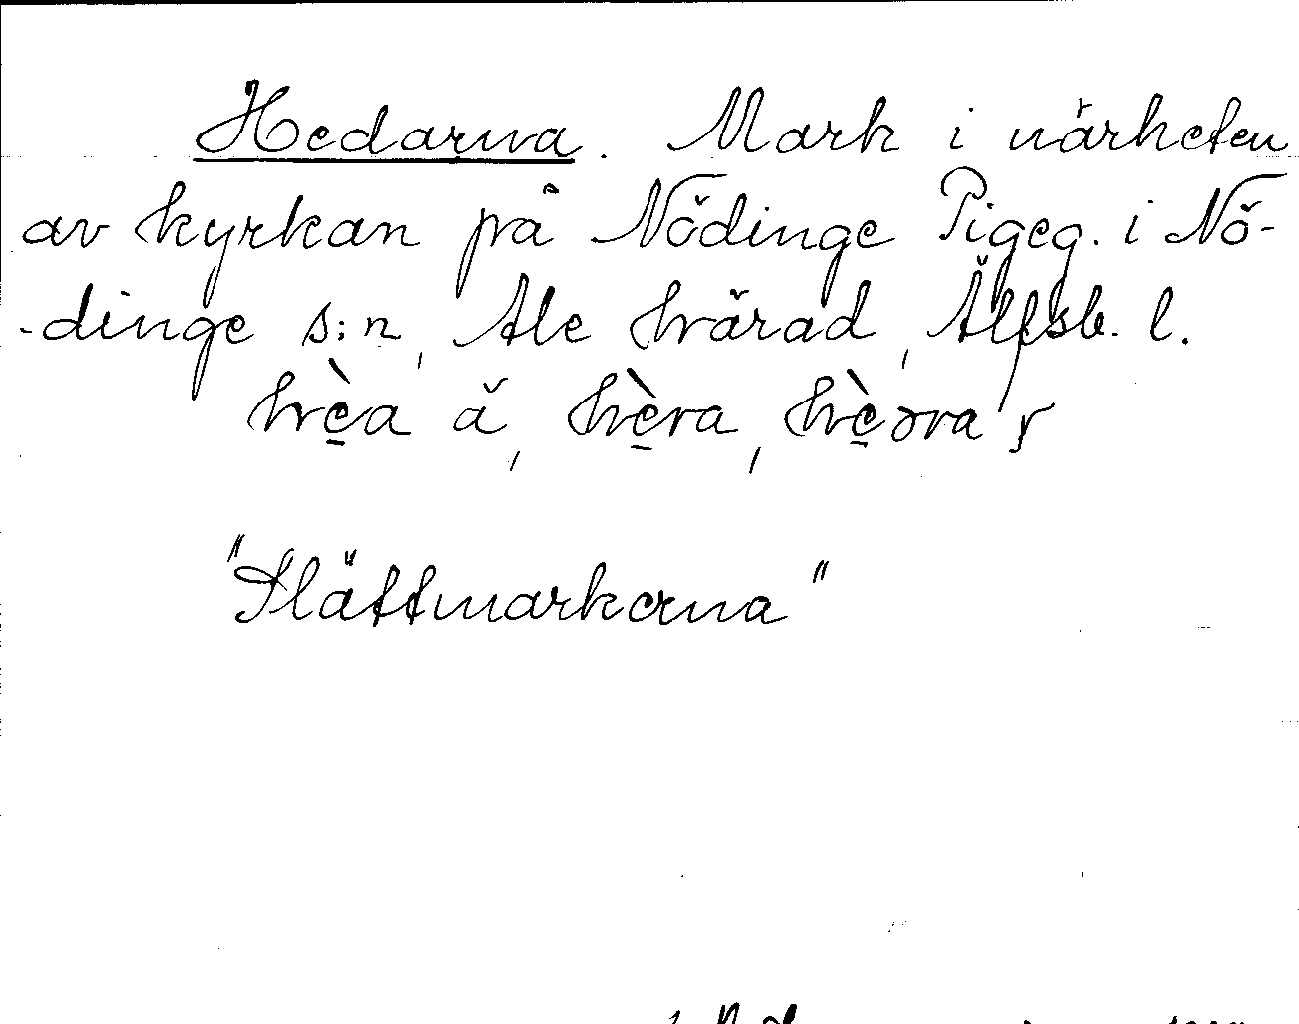 Hedarna. Mark i närheten
av kyrkan på Nödinge Pigeg. i Nö-
-dinge s:n, Ale härad, Älfsb. l.
hè̠a ă, hè̠ra, hè̠ɔra
"Slättmarkerna"